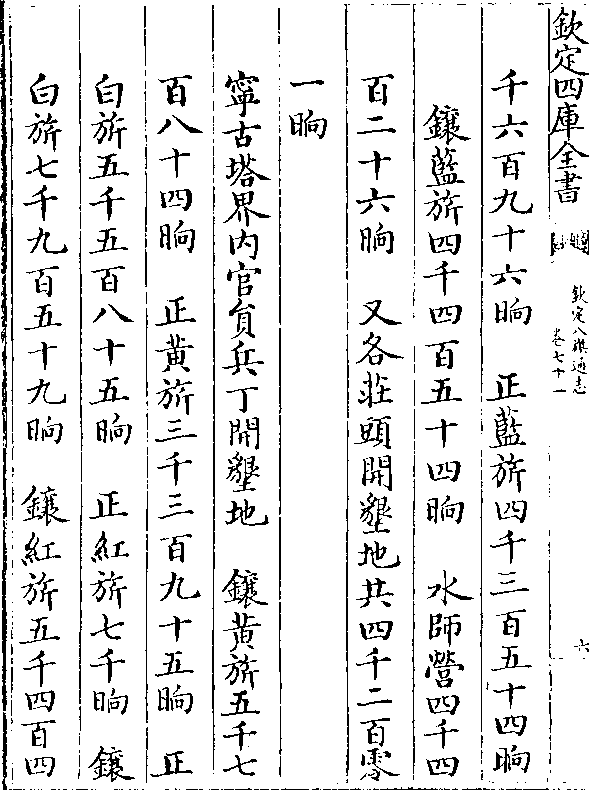 欽定四庫全書
欽定八旗通志
卷七十一
六
千六百九十六晌　正藍旂四千三百五十四晌
鑲藍旂四千四百五十四晌　水師營四千四
百二十六晌　又各莊頭開墾地共四千二百零
一晌
寧古塔界内官員兵丁開墾地　鑲黄旂五千七
百八十四晌　正黄旂三千三百九十五晌　正
白旂五千五百八十五晌　正紅旂七千晌　鑲
白旂七千九百五十九晌　鑲紅旂五千四百四